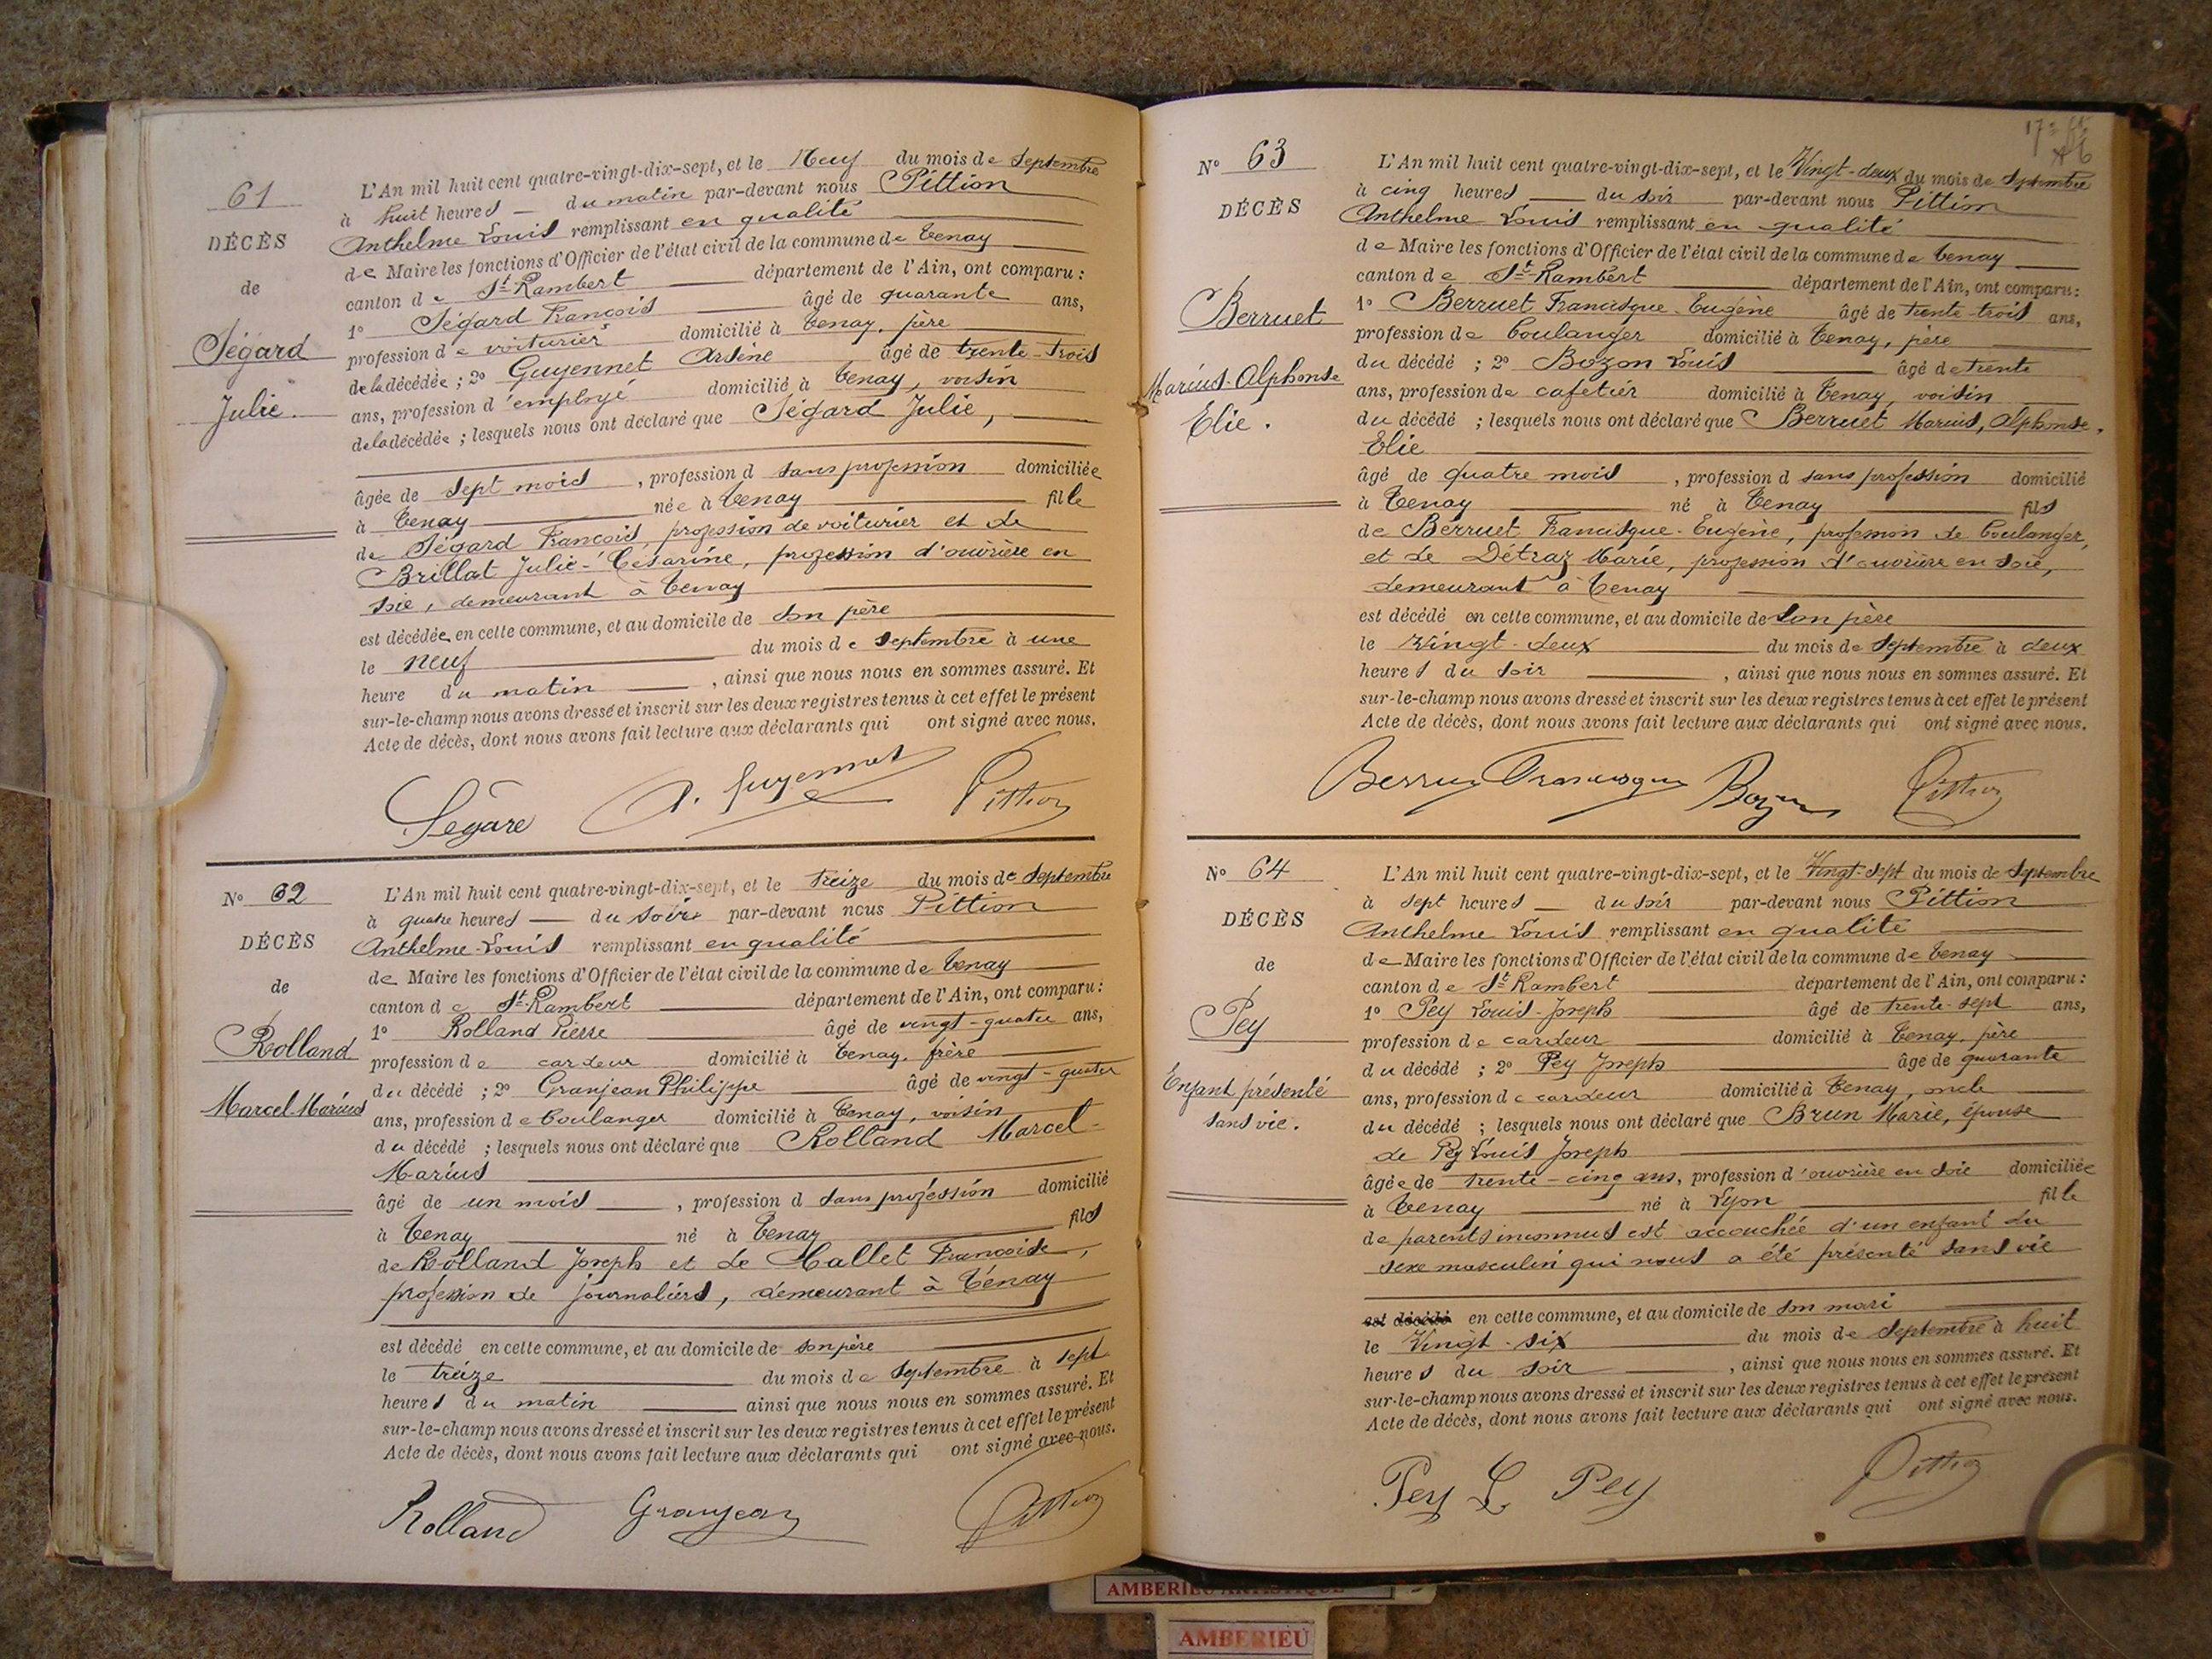 61
DÉCÈS
de
Ségard
Julie.
L'An mil huit cent quatre-vingt-dix-sept, et le Neuf du mois de Septembre
à huit heures du matin par-devant nous Pittion
Anthelme Louis remplissant en qualité
de Maire les fonctions d'Officier de l'état civil de la commune de Tenay
canton de St-Rambert département de l'Ain, ont comparu :
1° Ségard François âgé de quarante ans,
profession de voiturier domicilié à Tenay, père
de la décédée ; 2° Guyennet Arsène âgé de trente-trois
ans, profession d'employé domicilié à Tenay, voisin
de la décédée ; lesquels nous ont déclaré que Ségard Julie,
âgée de sept mois, profession d sans profession domiciliée
à Tenay née à Tenay fille
de Ségard François, profession de voiturier et de
Brillat Julie-Césarine, profession d'ouvrière en
soie, demeurant à Tenay
est décédée en cette commune, et au domicile de son père
le neuf du mois de septembre à une
heure du matin, ainsi que nous nous en sommes assuré. Et
sur-le-champ nous avons dressé et inscrit sur les deux registres tenus à cet effet le présent
Acte de décès, dont nous avons fait lecture aux déclarants qui ont signé avec nous.
Ségard A. Guyennet Pittion
N° 62
DÉCÈS
de
Rolland
Marcel-Marius
L'An mil huit cent quatre-vingt-dix-sept, et le treize du mois de Septembre
à quatre heures du soir par-devant nous Pittion
Anthelme-Louis remplissant en qualité
de Maire les fonctions d'Officier de l'état civil de la commune de Tenay
canton de St-Rambert département de l'Ain, ont comparu :
1° Rolland Pierre âgé de vingt-quatre ans,
profession de cardeur domicilié à Tenay, frère
du décédé ; 2° Granjean Philippe âgé de vingt-quatre
ans, profession de boulanger domicilié à Tenay, voisin
du décédé ; lesquels nous ont déclaré que Rolland Marcel-
Marius
âgé de un mois, profession d sans profession domicilié
à Tenay né à Tenay fils
de Rolland Joseph et de Mallet Françoise,
profession de journaliers, demeurant à Tenay
est décédé en cette commune, et au domicile de son père
le treize du mois de Septembre à sept
heures du matin ainsi que nous nous en sommes assuré. Et
sur-le-champ nous avons dressé et inscrit sur les deux registres tenus à cet effet le présent
Acte de décès, dont nous avons fait lecture aux déclarants qui ont signé avec nous.
Rolland Granjean Pittion
N° 63
DÉCÈS
Berruet
Marius-Alphonse
Élie.
L'An mil huit cent quatre-vingt-dix-sept, et le Vingt-deux du mois de Septembre
à cinq heures du soir par-devant nous Pittion
Anthelme Louis remplissant en qualité
de Maire les fonctions d'Officier de l'état civil de la commune de Tenay
canton de St-Rambert département de l'Ain, ont comparu :
1° Berruet Francisque-Eugène âgé de trente-trois ans,
profession de boulanger domicilié à Tenay, père
du décédé ; 2° Bozon Louis âgé de trente
ans, profession de cafetier domicilié à Tenay, voisin
du décédé ; lesquels nous ont déclaré que Berruet Marius, Alphonse,
Elie
âgé de quatre mois, profession d sans profession domicilié
à Tenay né à Tenay fils
de Berruet Francisque-Eugène, profession de boulanger,
et de Détraz Marie, profession d'ouvrière en soie,
demeurant à Tenay
est décédé en cette commune, et au domicile de son père
le Vingt-deux du mois de Septembre à deux
heures du soir, ainsi que nous nous en sommes assuré. Et
sur-le-champ nous avons dressé et inscrit sur les deux registres tenus à cet effet le présent
Acte de décès, dont nous avons fait lecture aux déclarants qui ont signé avec nous.
Berruet Francisque Bozon Pittion
N° 64
DÉCÈS
de
Pey
Enfant présenté
sans vie.
L'An mil huit cent quatre-vingt-dix-sept, et le Vingt-sept du mois de Septembre
à sept heures du soir par-devant nous Pittion
Anthelme Louis remplissant en qualité
de Maire les fonctions d'Officier de l'état civil de la commune de Tenay
canton de St-Rambert département de l'Ain, ont comparu :
1° Pey Louis-Joseph âgé de trente-sept ans,
profession de cardeur domicilié à Tenay, père
du décédé ; 2° Pey Joseph âgé de quarante
ans, profession de cardeur domicilié à Tenay, oncle
du décédé ; lesquels nous ont déclaré que Brun Marie, épouse
de Pey Louis Joseph
âgée de trente-cinq ans, profession d'ouvrière en soie domiciliée
à Tenay né à Lyon fille
de parents inconnus est accouchée d'un enfant du
sexe masculin qui nous a été présenté sans vie
est décédé en cette commune, et au domicile de son mari
le Vingt-six du mois de Septembre à huit
heures du soir, ainsi que nous nous en sommes assuré. Et
sur-le-champ nous avons dressé et inscrit sur les deux registres tenus à cet effet le présent
Acte de décès, dont nous avons fait lecture aux déclarants qui ont signé avec nous.
Pey L Pey Pittion
AMBERIEU ARTISTIQUE
AMBERIEU